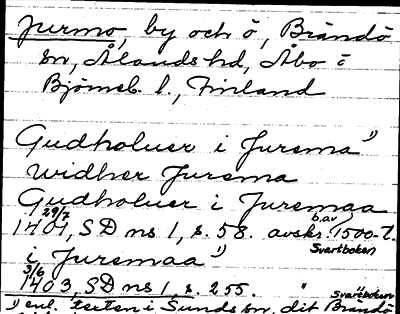 Jurmo, by och ö, Brändö
sn, Ålands hd, Åbo o
Björneb. l., Finland
Gudholuer i Juresma 1)
widher Juresma
Gudholuer i Juresmaa
1401 29/7, SD ns 1, s. 58. avskr. b. av 1500-t.
Svartboken
i Juresmaa 1)
1403 3/6, SD ns 1, s. 255. " Svartboken
1) enl. texten i Sunds sn, dit Brändö